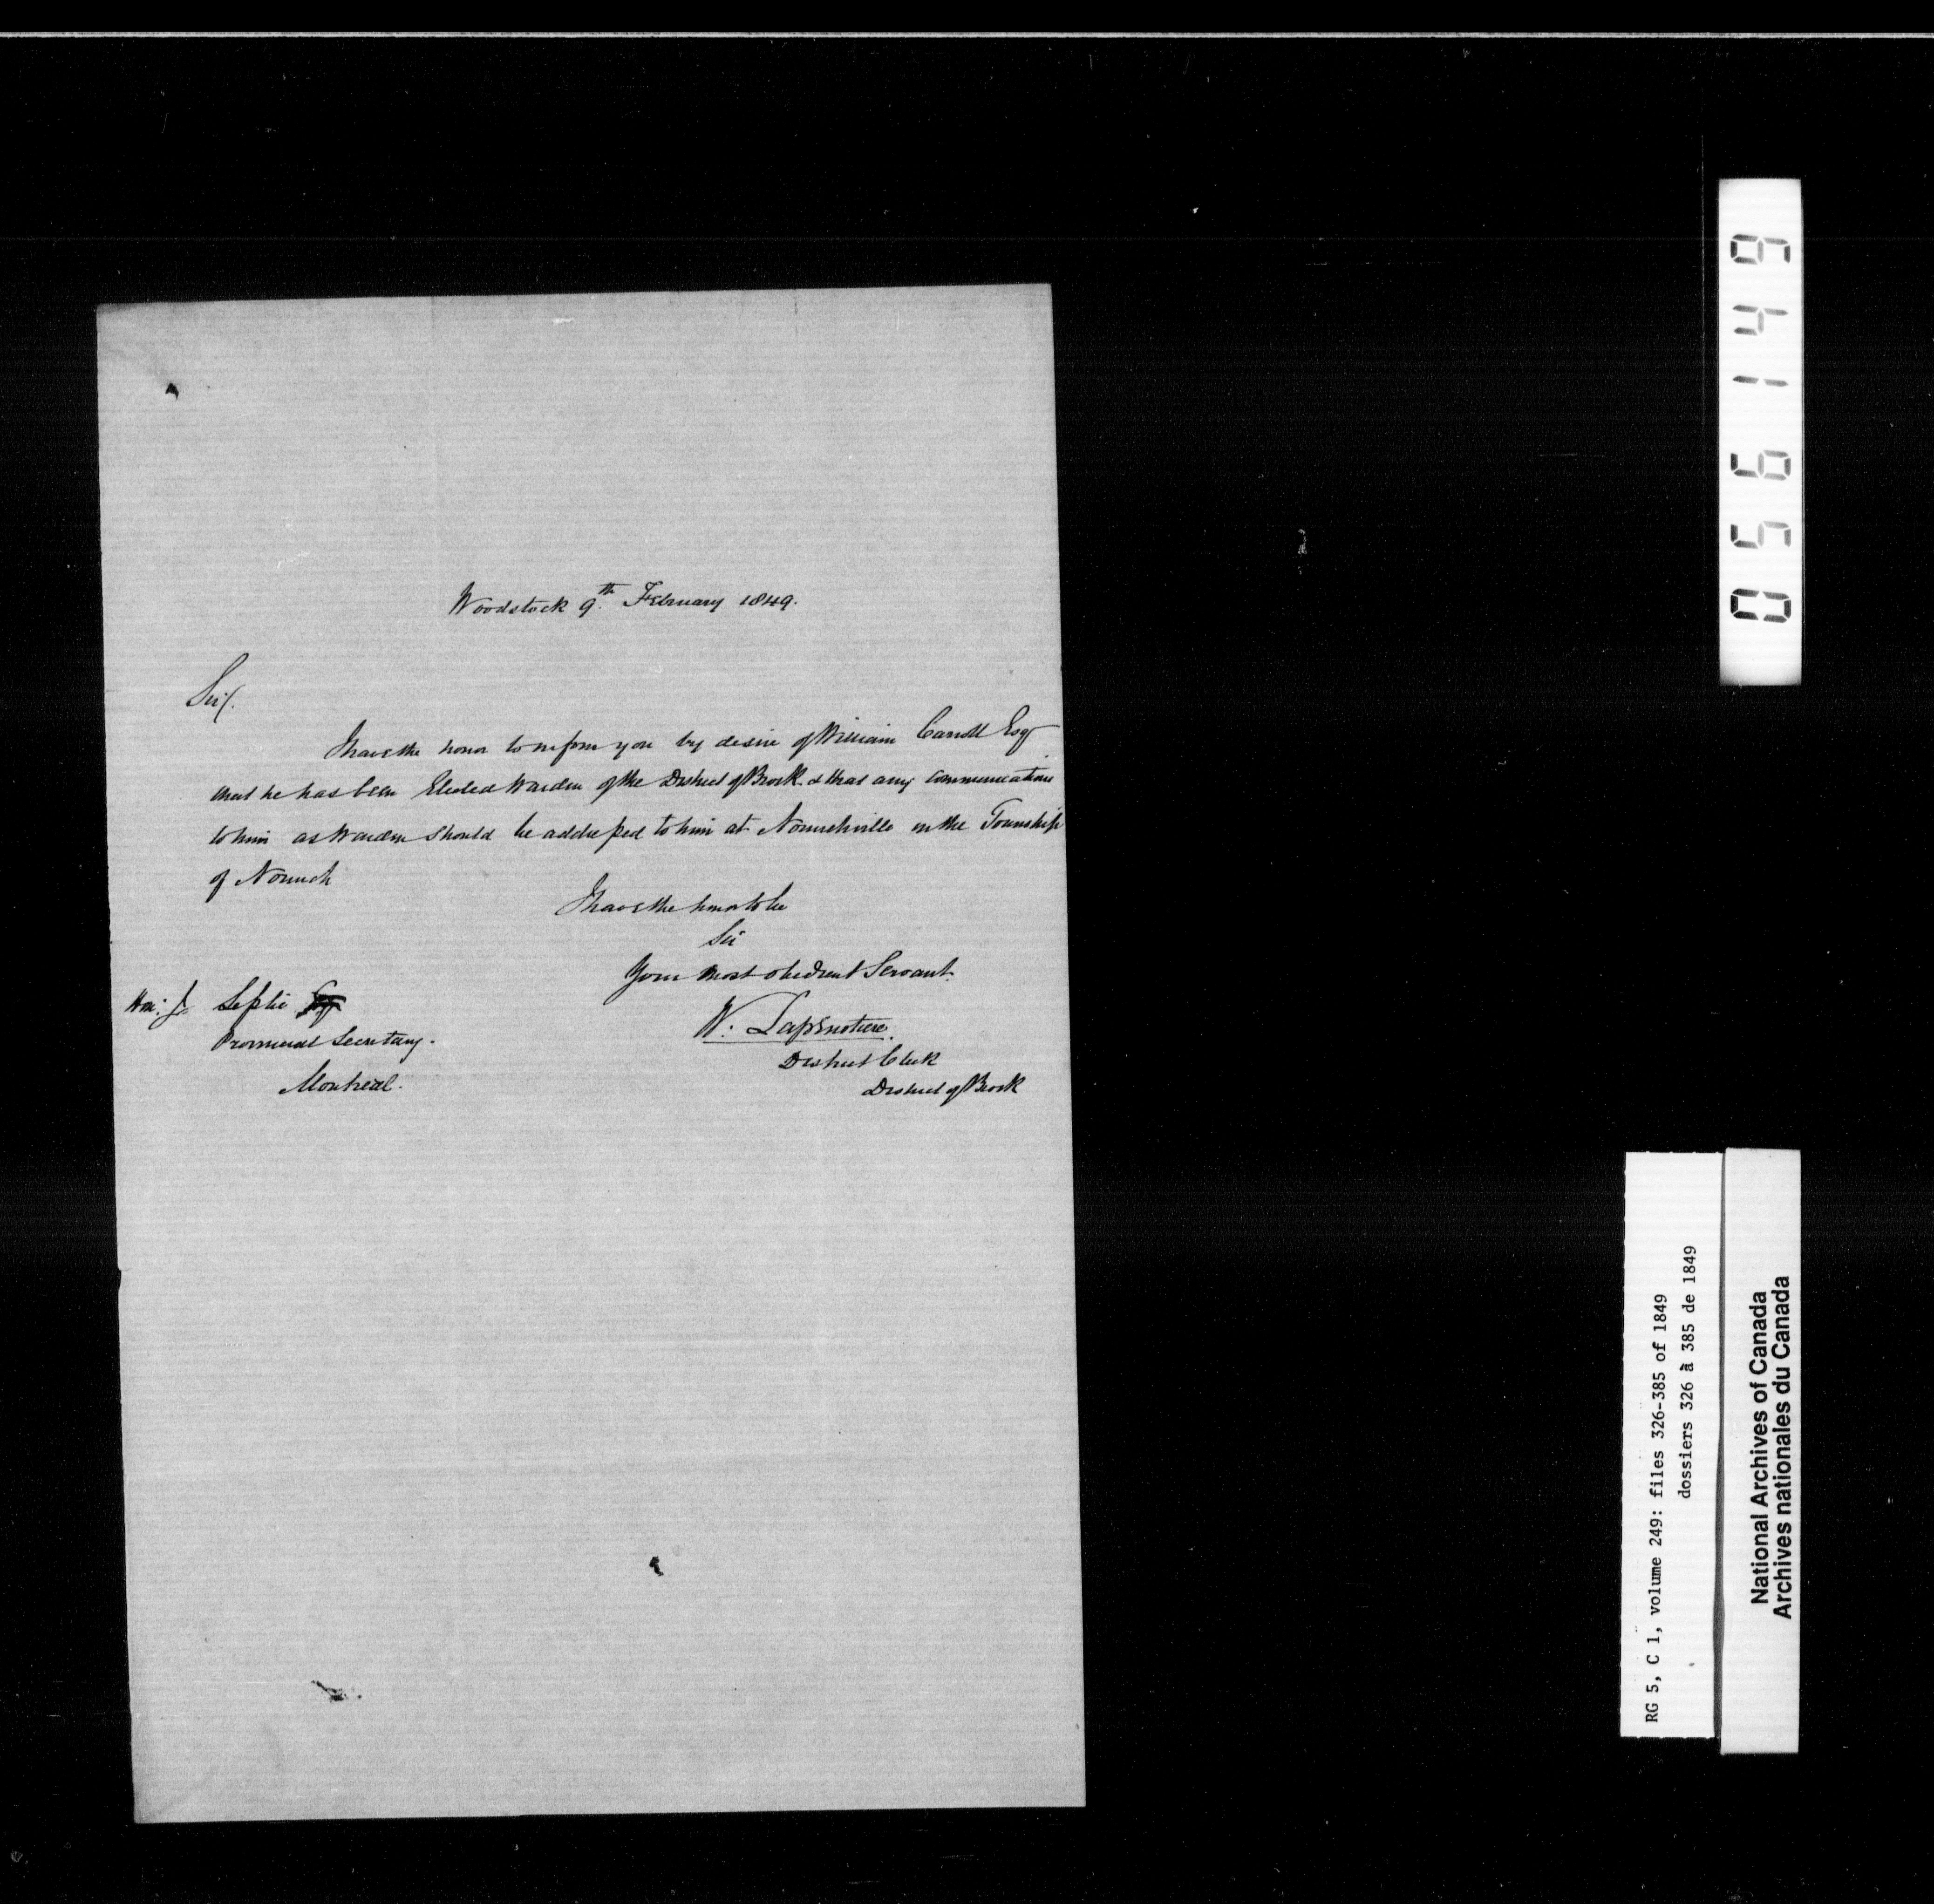 Woodstock 9th February 1849.
Sir/.
I have the honor to inform you by desire of William Carroll Esqr
that he has been Elected Warden of the District of Brock & that any communications
to him as Warden should be addressed to him at Norwichville in the Township
of Norwich
I have the honor to be
Sir
Your most obedient Servant.
W. Lapenotiere.
District Clerk
District of Brock
Hon: J. Leslie Esq
Provincial Secretary.
Montreal.
056149
RG 5, C 1, volume 249: files 326-385 of 1849
dossiers 326 à 385 de 1849
National Archives of Canada
Archives nationales du Canada